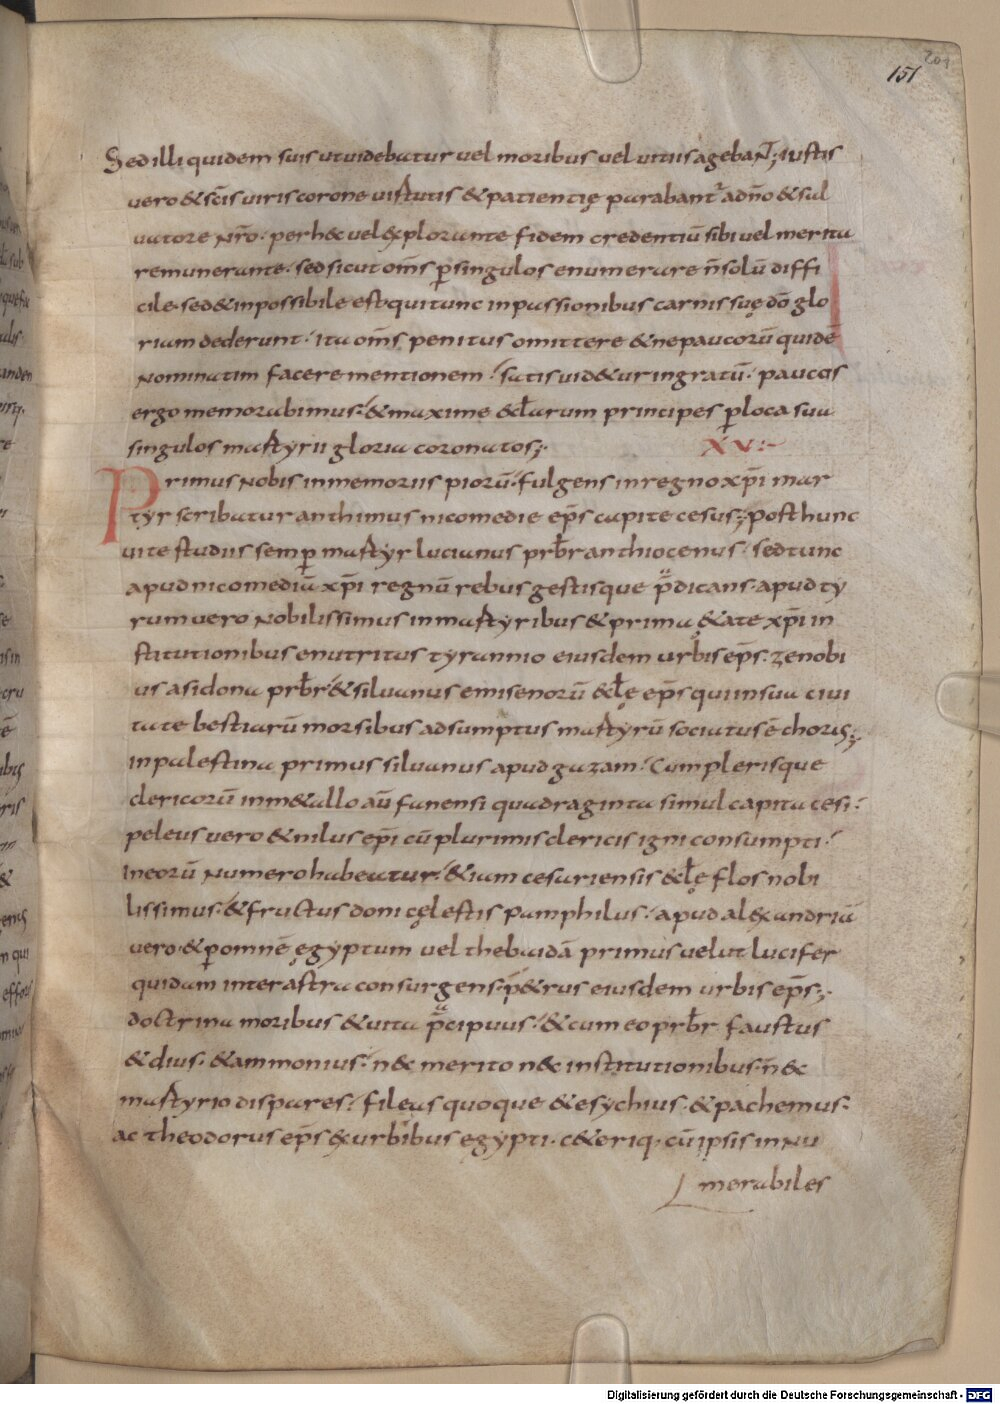 201
151
Sed illi quidem suis ut uidebatur uel moribus uel uitiis agebaNT; iustis
uero & sc̄is uiris corone uirtutis & patientię parabant᷑ ad dn̄o & sal
uatore Nr̄o· per h&c uel explorante fidem credentiū sibi uel merita
remunerante· sed sicut om̄s ꝑ singulos enumerare n̄ solū diffi
cile· sed & inpossibile est· qui tunc in passionibus carnis suę dō glo
riam dederunt· ita om̄s penitus omittere & ne paucorū quidē
Nominatim facere mentionem· satis uid&ur ingratū· paucis
ergo memorabimus· & maxime &cl̄arum principes ꝑ loca sua
singulos martyrii gloria coronatos;· XV:~
Primus Nobis in memoriis piorū· fulgens in regno xp̄i mar
tyr scribatur anthimus nicomedie ep̄s capite cesus; post hunc
uite studiis semꝑ martyr lucianus prb̄r anthiocenus· sed tunc
apud nicomediā xp̄i regnū rebus gestisque p̄dicans· apud ty
rum uero Nobilissimus in martyribus & prima ę&ate xp̄i in
stitutionibus enutritus tyrannio eiusdem urbis ep̄s· zenobi
us a sidona prb̄r· & siluanus emisenorū &cl̄ę ep̄s qui in sua ciui
tate bestiarū morsibus adsumptus martyrū sociatus ē choris;
in palestina primus siluanus apud gazam· Cum plerisque
clericorū in m&allo aū funensi quadraginta simul capita cesi·
peleus uero & nilus ep̄i cū plurimis clericis igni consumpti·
in eorū Numero habeatur· & iam cesariensis &cl̄ę flos nobi
lissimus· & fructus doni cęlestis pamphilus· apud alexandriā
uero· & ꝑ omnē ęgyptum uel thebaidā primus uelut lucifer
quidam inter astra consurgens· p&rus eiusdem urbis ep̄s;·
doctrina moribus & uita p̄cipuus· & cum eo prb̄r faustus
& dius· & ammonius· n&c merito n&c institutionibus· n&c
martyrio dispares· fileas quoque & esychius· & pachemus·
ac theodorus ep̄s ex urbibus egypti· c&eriq· cū ipsis in Nu
merabiles
Digitalisierung gefördert durch die Deutsche Forschungsgemeinschaft - DFG